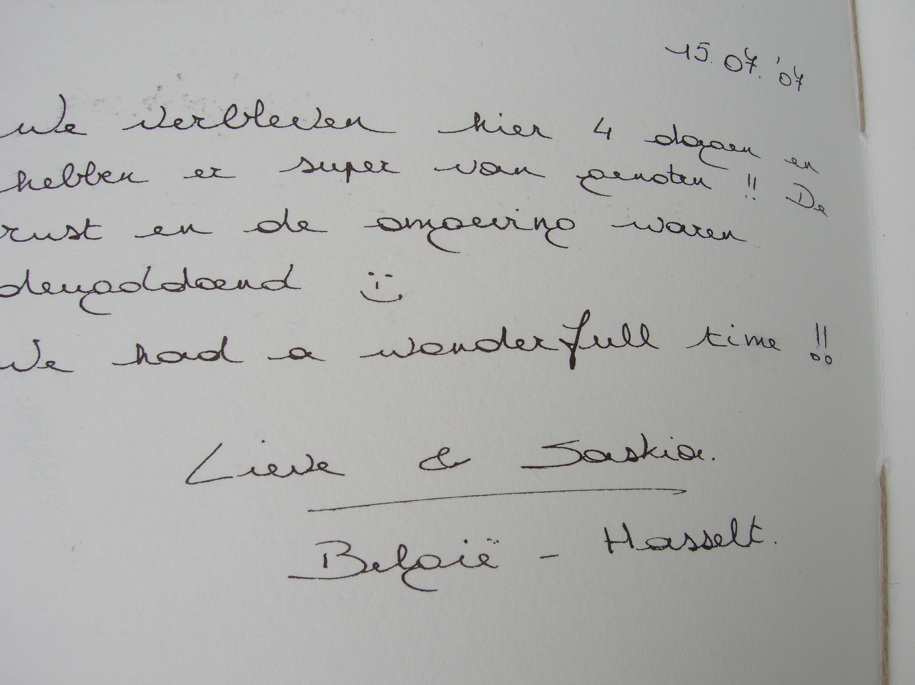 15.07.'07
We verbleven hier 4 dagen en
hebben er super van genoten !! De
rust en de omgeving waren
deugddoend :)
We had a wonderfull time !!
Lieve & Saskia.
België - Hasselt.